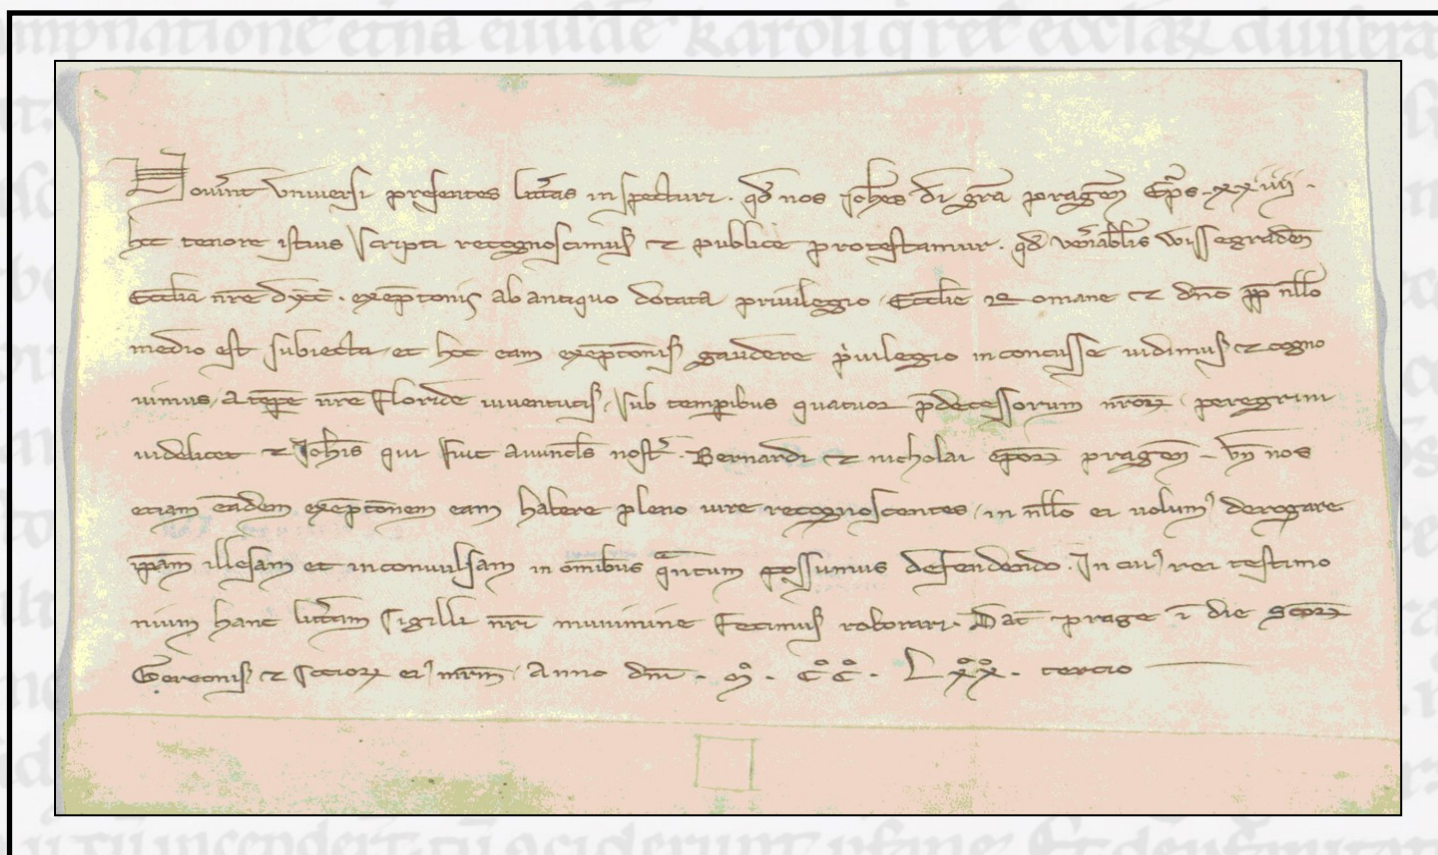 Nov̄int vniuersi presentes litt̄as inspecturi. qd̄ nos Joh̄es dī gr̄a pragen̄ Ep̄s xxiiii.
hoc tenore istius scripti recognoscimus et publice protestamur. qd̄ ven̄abilis Wissegraden̄
Eccl̄ia nr̄e dyoc̄. exēptionis ab antiquo dotata priuilegio Eccl̄ie Romane et dn̄o pp̄ nll̄o
medio est subiecta et hoc eam exēptionis gaudere p̄uilegio inconcusse uidimus et cogno
uimus, A tp̄e nr̄e Floride iuuentutis, sub temporibus quatuor p̄decessorum nr̄oꝝ peregrini
uidelicet et Joh̄is qui fuit auuncl̄s nostr̄. Bernardi et nicholai ep̄oꝝ pragen̄ Vn̄ nos
etiam eādem exēptōnem eam habere pleno iure recognoscentes, in nll̄o ei uolumꝰ derogare
ip̄am illesam et inconuulsam in om̄ibus qn̄tum possumus defendendo. In cuiꝰ rei testimo
nium hanc litt̄am sigilli nr̄i munimine fecimus roborari. Dat̄ prage ī die sc̄oꝝ
Gereonis et socioꝝ eiꝰ mr̄m̄ Anno dn̄i. mͦ. cͦcͦ. Lxͦxͦ. tercio